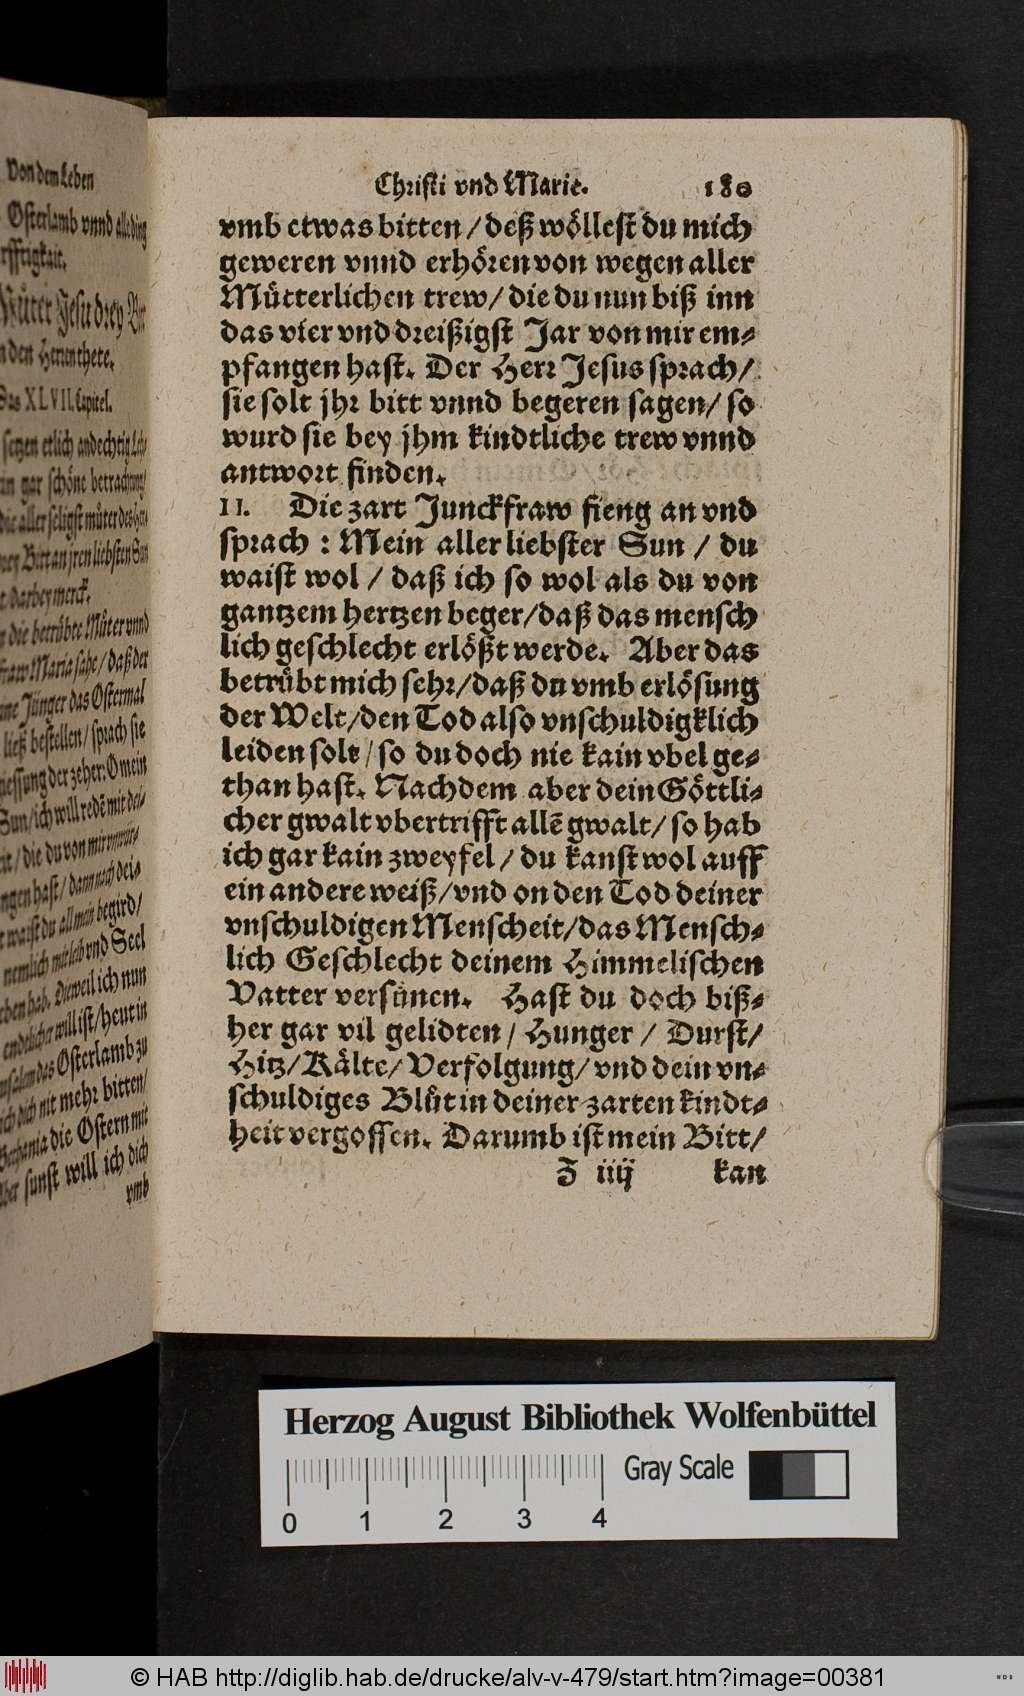 Von dem Leben
Osterlamb vnnd alle ding
Můter Jesu drey Bit
den Herren thete.
Das XLVII. Capitel.
setzen etlich andechtig
gar schöne betrachtung
die aller seligst můter des
drey Bitt an jren liebsten Sun
darbey merck.
die betrübte Můter vnnd
Maria sahe / daß der
Jünger das Ostermal
ließ bestellen / sprach sie
der zeher: O mein
Sun / ich will redē mit
die du von mir
hast / dann nach dei-
waist du all mein begird /
nemlich mit leib vnd Seel
hab. Dieweil ich nun
endtlicher will ist / heut in
das Osterlamb zu
ich dich nit mehr bitten /
Bethania die Ostern mit
sunst will ich dich
vmb
Christi vnd Marie. 180
vmb etwas bitten / deß wöllest du mich
geweren vnnd erhören von wegen aller
Mütterlichen trew / die du nun biß inn
das vier vnd dreißigst Jar von mir em-
pfangen hast. Der Herr Jesus sprach /
sie solt jhr bitt vnnd begeren sagen / so
wurd sie bey jhm kindtliche trew vnnd
antwort finden.
II. Die zart Junckfraw fieng an vnd
sprach : Mein aller liebster Sun / du
waist wol / daß ich so wol als du von
gantzem hertzen beger / daß das mensch
lich geschlecht erlößt werde. Aber das
betrübt mich sehr / daß du vmb erlösung
der Welt / den Tod also vnschuldigklich
leiden solt / so du doch nie kain vbel ge-
than hast. Nachdem aber dein Göttli-
cher gwalt vbertrifft allē gwalt / so hab
ich gar kain zweyfel / du kanst wol auff
ein andere weiß / vnd on den Tod deiner
vnschuldigen Menscheit / das Mensch-
lich Geschlecht deinem Himmelischen
Vatter versünen. Hast du doch biß-
her gar vil gelidten / Hunger / Durst /
Hitz / Kälte / Verfolgung / vnd dein vn-
schuldiges Blůt in deiner zarten kindt-
heit vergossen. Darumb ist mein Bitt /
Z iiij kan
Herzog August Bibliothek Wolfenbüttel
Gray Scale
0 1 2 3 4
© HAB http://diglib.hab.de/drucke/alv-v-479/start.htm?image=00381